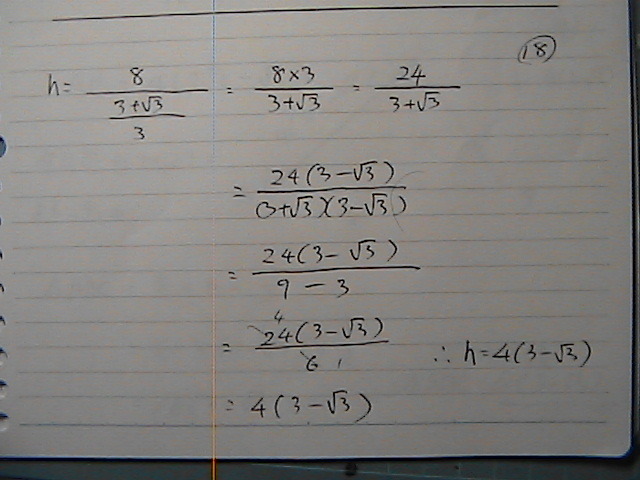 18
h = 8/((3+√3)/3) = (8×3)/(3+√3) = 24/(3+√3)
= 24(3-√3)/(3+√3)(3-√3)
= 24(3-√3)/(9-3)
= 4 24(3-√3)/6 1 ∴ h=4(3-√3)
= 4(3-√3)